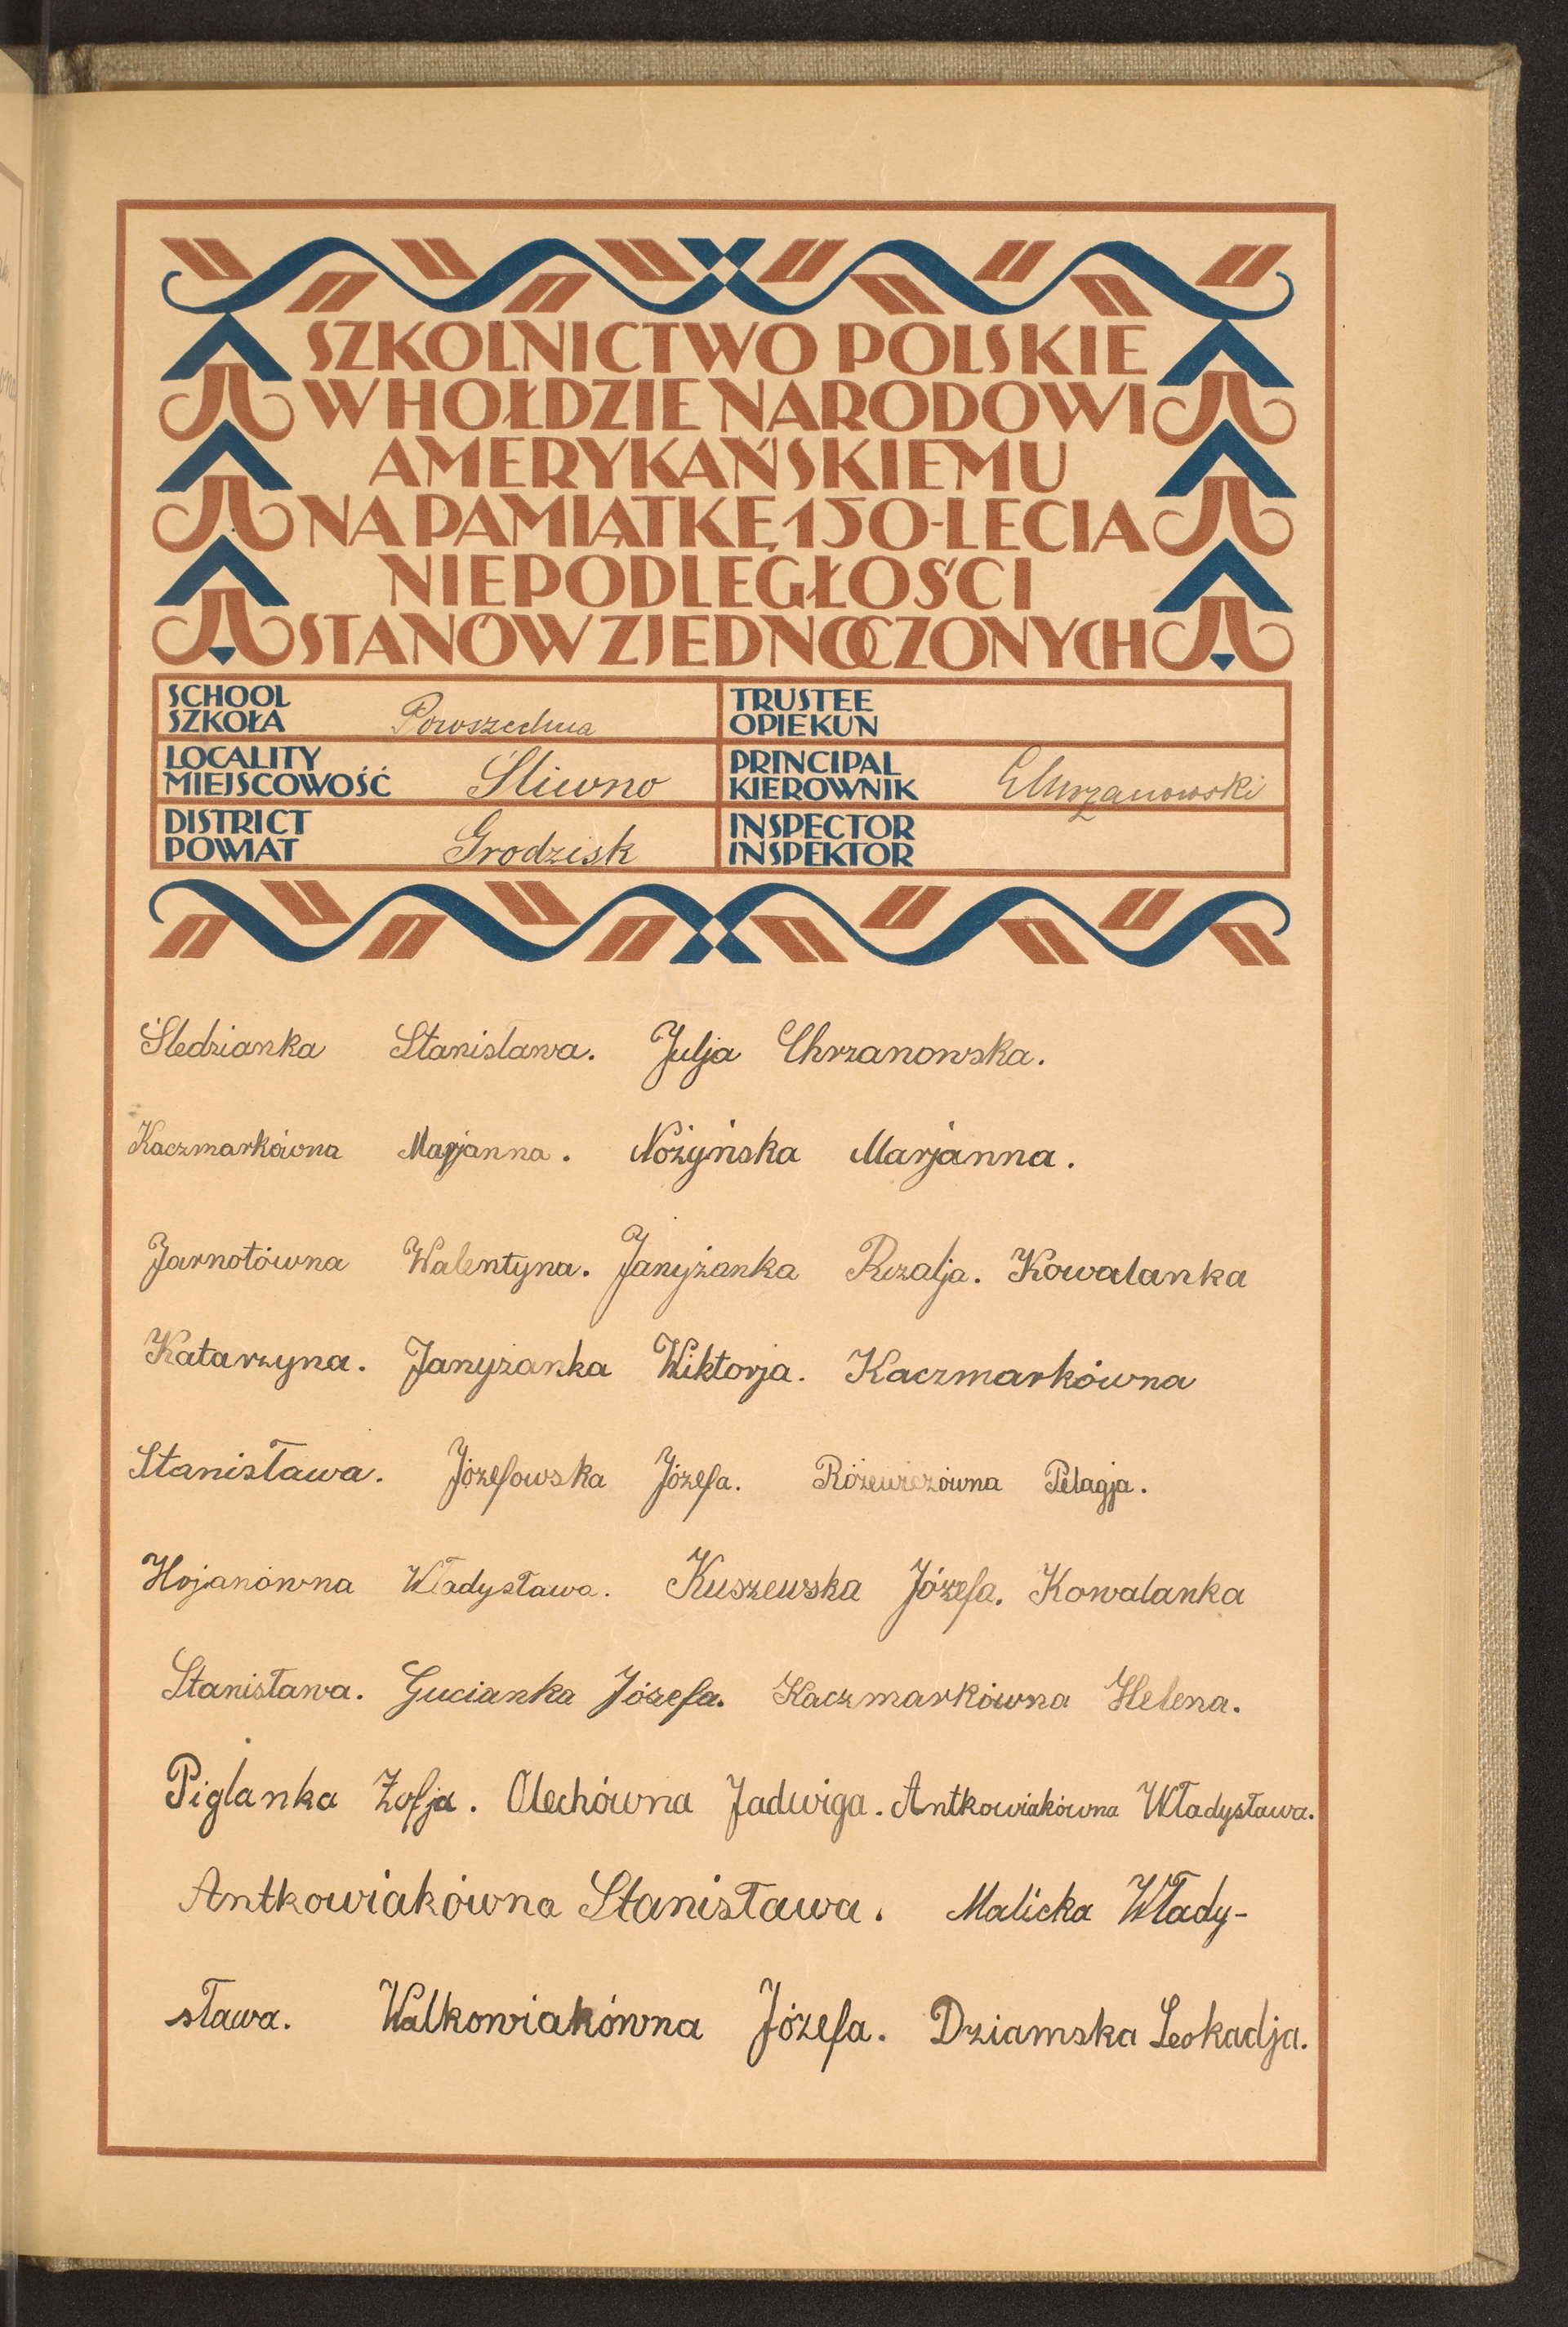 SZKOLNICTWO POLSKIE
W HOŁDZIE NARODOWI
AMERYKAŃSKIEMU
NA PAMIĄTKĘ 150-LECIA
NIEPODLEGŁOŚCI
STANÓW ZJEDNOCZONYCH
SCHOOL
SZKOŁA Powszechna
TRUSTEE
OPIEKUN
LOCALITY
MIEJSCOWOŚĆ Śliwno
PRINCIPAL
KIEROWNIK Chrzanowski
DISTRICT
POWIAT Grodzisk
INSPECTOR
INSPEKTOR
Śledzianka Stanislawa. Julja Chrzanowska.
Kaczmarkówna Marjanna. Nożyńska Marjanna.
Jarnotówna Walentyna. Janyżanka Rozalja. Kowalanka
Katarzyna. Janyżanka Wiktorja. Kaczmarkówna
Stanisława. Józefowska Józefa. Różewiczówna Pelagja.
Hojanówna Władysława. Kuszewska Józefa. Kowalanka
Stanisława. Gucianka Józefa. Kaczmarkówna Helena.
Piglanka Zofja. Olechówna Jadwiga. Antkowiakówna Władysława.
Antkowiakówna Stanisława. Malicka Włady-
sława. Walkowiakówna Józefa. Dziamska Leokadja.